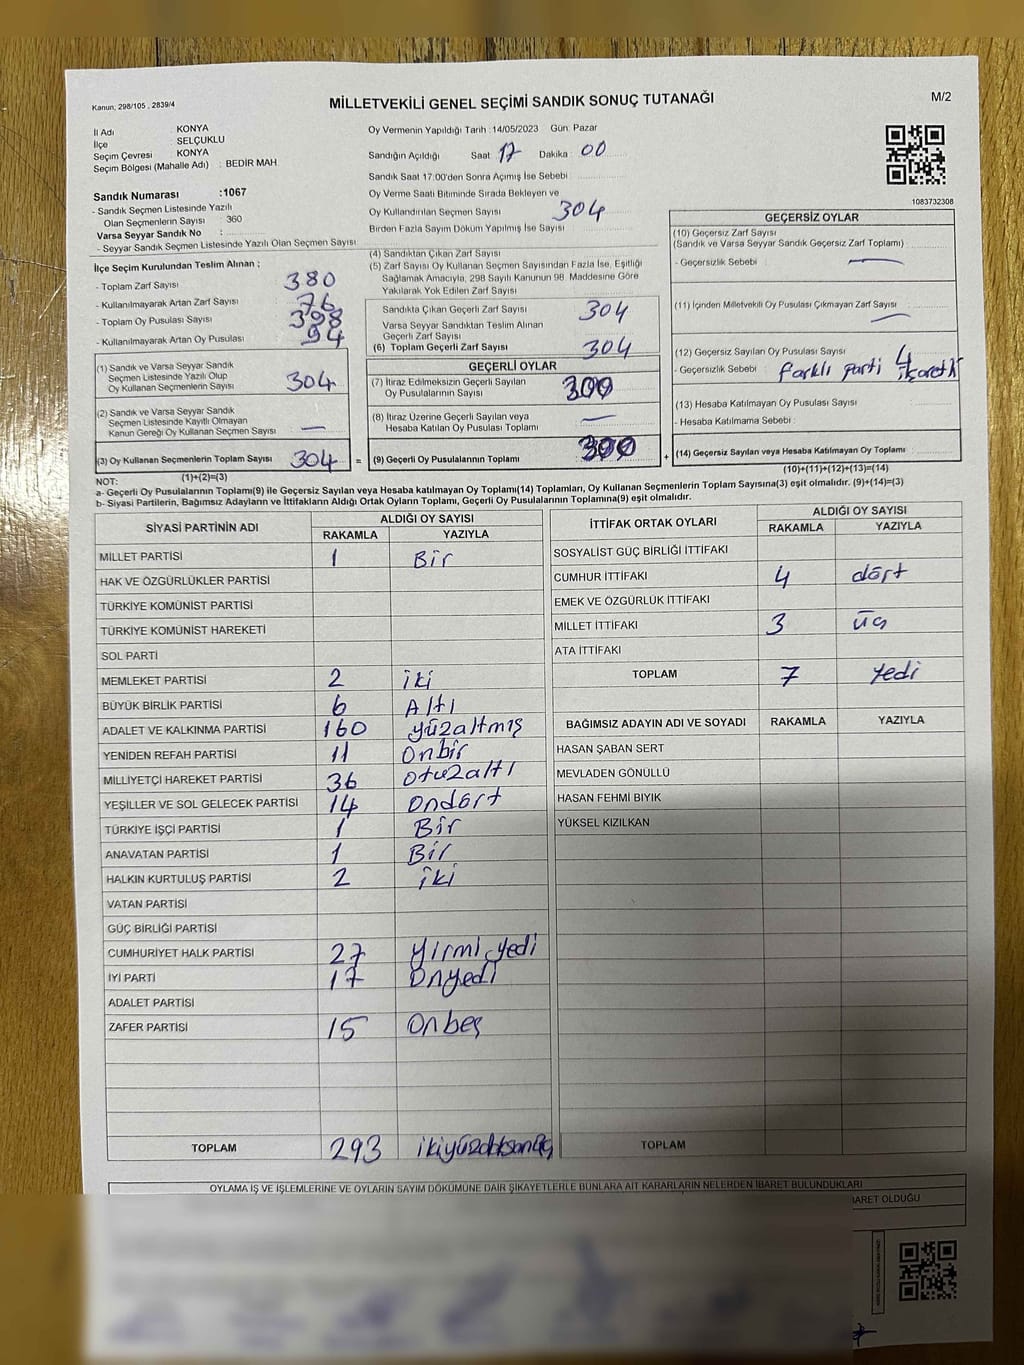 Kanun, 298/105 , 2839/4
MİLLETVEKİLİ GENEL SEÇİMİ SANDIK SONUÇ TUTANAĞI
M/2
İl Adı KONYA
İlçe SELÇUKLU
Seçim Çevresi KONYA
Seçim Bölgesi (Mahalle Adı) : BEDİR MAH.
Sandık Numarası :1067
- Sandık Seçmen Listesinde Yazılı
Olan Seçmenlerin Sayısı : 360
Varsa Seyyar Sandık No :
- Seyyar Sandık Seçmen Listesinde Yazılı Olan Seçmen Sayısı
Oy Vermenin Yapıldığı Tarih :14/05/2023 Gün: Pazar
Sandığın Açıldığı Saat 17 Dakika : 00
Sandık Saat 17:00'den Sonra Açımış İse Sebebi :
Oy Verme Saati Bitiminde Sırada Bekleyen ve
Oy Kullandırılan Seçmen Sayısı 304
Birden Fazla Sayım Döküm Yapılmış İse Sayısı :
1083732308
İlçe Seçim Kurulundan Teslim Alınan ;
- Toplam Zarf Sayısı 380
- Kullanılmayarak Artan Zarf Sayısı 76
- Toplam Oy Pusulası Sayısı 398
- Kullanılmayarak Artan Oy Pusulası 94
(1) Sandık ve Varsa Seyyar Sandık
Seçmen Listesinde Yazılı Olup
Oy Kullanan Seçmenlerin Sayısı 304
(2) Sandık ve Varsa Seyyar Sandık
Seçmen Listesinde Kayıtlı Olmayan
Kanun Gereği Oy Kullanan Seçmen Sayısı : —
(3) Oy Kullanan Seçmenlerin Toplam Sayısı 304 =
(1)+(2)=(3)
(4) Sandıktan Çıkan Zarf Sayısı
(5) Zarf Sayısı Oy Kullanan Seçmen Sayısından Fazla İse, Eşitliği
Sağlamak Amacıyla, 298 Sayılı Kanunun 98. Maddesine Göre
Yakılarak Yok Edilen Zarf Sayısı
Sandıkta Çıkan Geçerli Zarf Sayısı : 304
Varsa Seyyar Sandıktan Teslim Alınan
Geçerli Zarf Sayısı
(6) Toplam Geçerli Zarf Sayısı 304
GEÇERLİ OYLAR
(7) İtiraz Edilmeksizin Geçerli Sayılan
Oy Pusulalarının Sayısı : 300
(8) İtiraz Üzerine Geçerli Sayılan veya
Hesaba Katılan Oy Pusulası Toplamı : —
(9) Geçerli Oy Pusulalarının Toplamı : 300 +
GEÇERSİZ OYLAR
(10) Geçersiz Zarf Sayısı
(Sandık ve Varsa Seyyar Sandık Geçersiz Zarf Toplamı)
- Geçersizlik Sebebi : —
(11) İçinden Milletvekili Oy Pusulası Çıkmayan Zarf Sayısı :
—
(12) Geçersiz Sayılan Oy Pusulası Sayısı : 4
- Geçersizlik Sebebi : farklı parti
(13) Hesaba Katılmayan Oy Pusulası Sayısı
- Hesaba Katılmama Sebebi :
(14) Geçersiz Sayılan veya Hesaba Katılmayan Oy Toplamı :
(10)+(11)+(12)+(13)=(14)
NOT:
a- Geçerli Oy Pusulalarının Toplamı(9) ile Geçersiz Sayılan veya Hesaba Katılmayan Oy Toplamı(14) Toplamları, Oy Kullanan Seçmenlerin Toplam Sayısına(3) eşit olmalıdır. (9)+(14)=(3)
b- Siyasi Partilerin, Bağımsız Adayların ve İttifakların Aldığı Ortak Oyların Toplamı, Geçerli Oy Pusulalarının Toplamına(9) eşit olmalıdır.
SİYASİ PARTİNİN ADI ALDIĞI OY SAYISI
RAKAMLA YAZIYLA
MİLLET PARTİSİ 1 Bir
HAK VE ÖZGÜRLÜKLER PARTİSİ
TÜRKİYE KOMÜNİST PARTİSİ
TÜRKİYE KOMÜNİST HAREKETİ
SOL PARTİ
MEMLEKET PARTİSİ 2 iki
BÜYÜK BİRLİK PARTİSİ 6 Altı
ADALET VE KALKINMA PARTİSİ 160 yüzaltmış
YENİDEN REFAH PARTİSİ 11 Onbir
MİLLİYETÇİ HAREKET PARTİSİ 36 otuzaltı
YEŞİLLER VE SOL GELECEK PARTİSİ 14 Ondört
TÜRKİYE İŞÇİ PARTİSİ 1 Bir
ANAVATAN PARTİSİ 1 Bir
HALKIN KURTULUŞ PARTİSİ 2 iki
VATAN PARTİSİ
GÜÇ BİRLİĞİ PARTİSİ
CUMHURİYET HALK PARTİSİ 27 yirmi yedi
İYİ PARTİ 17 Onyedi
ADALET PARTİSİ
ZAFER PARTİSİ 15 Onbeş
TOPLAM 293 ikiyüzdoksanüç
İTTİFAK ORTAK OYLARI ALDIĞI OY SAYISI
RAKAMLA YAZIYLA
SOSYALİST GÜÇ BİRLİĞİ İTTİFAKI
CUMHUR İTTİFAKI 4 dört
EMEK VE ÖZGÜRLÜK İTTİFAKI
MİLLET İTTİFAKI 3 üç
ATA İTTİFAKI
TOPLAM 7 yedi
BAĞIMSIZ ADAYIN ADI VE SOYADI RAKAMLA YAZIYLA
HASAN ŞABAN SERT
MEVLADEN GÖNÜLLÜ
HASAN FEHMİ BIYIK
YÜKSEL KIZILKAN
TOPLAM
OYLAMA İŞ VE İŞLEMLERİNE VE OYLARIN SAYIM DÖKÜMÜNE DAİR ŞİKAYETLERLE BUNLARA AİT KARARLARIN NELERDEN İBARET BULUNDUKLARI
İBARET OLDUĞU